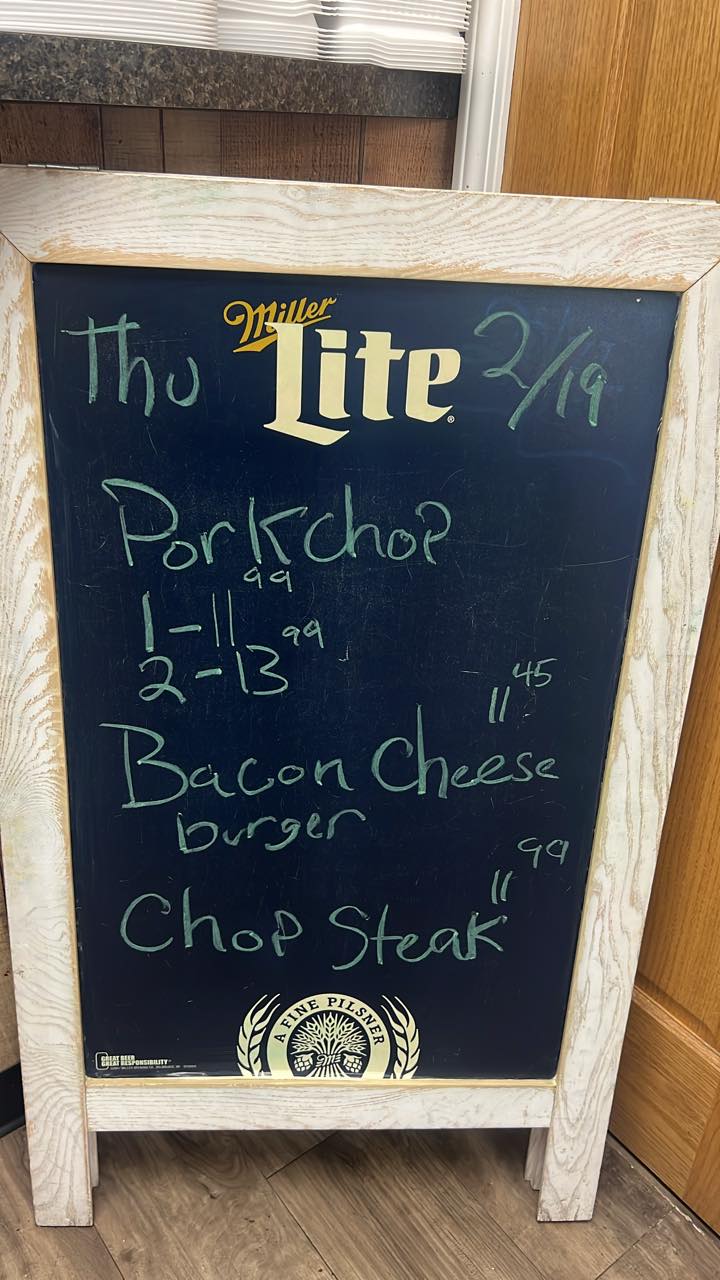 Thu Miller Lite® 2/19
Porkchop
1-11 99
2-13 99
11 45
Bacon Cheese
burger
11 99
Chop Steak
A FINE PILSNER
GREAT BEER
GREAT RESPONSIBILITY